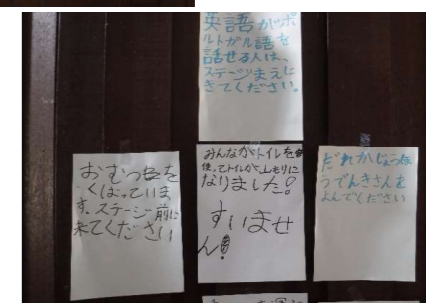 英語かポ
ルトガル語を
話せる人は、
ステージまえに
きてください。
おむつを
くばっていま
す。ステージ前に
来てください
みんながトイレを
使ってトイレが山もりに
なりました!
すいませ
ん!
だれか
うでんきさんを
よんでください